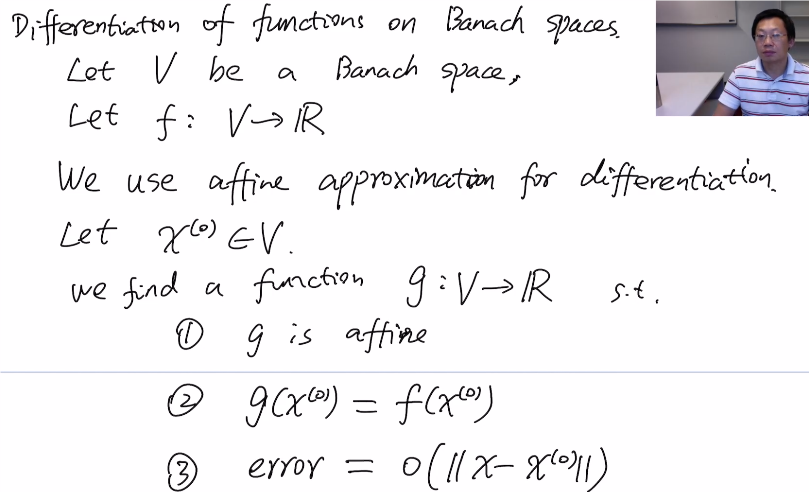 Differentiation of functions on Banach spaces.
Let V be a Banach space,
Let f: V→ℝ
We use affine approximation for differentiation.
Let x⁽⁰⁾ ∈ V.
we find a function g: V→ℝ s.t.
① g is affine
② g(x⁽⁰⁾) = f(x⁽⁰⁾)
③ error = o(||x - x⁽⁰⁾||)